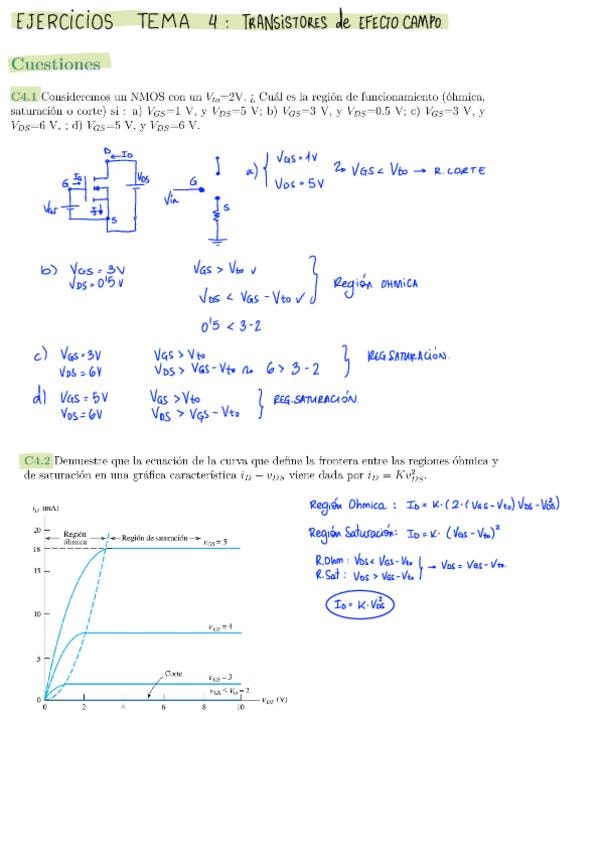 EJERCICIOS TEMA 4: TRANSISTORES de EFECTO CAMPO.
Cuestiones
C4.1 Consideremos un NMOS con un Vto=2V. ¿ Cuál es la región de funcionamiento (óhmica,
saturación o corte) si : a) VGS=1 V, y VDS=5 V; b) VGS=3 V, y VDS=0.5 V; c) VGS=3 V, y
VDS=6 V, ; d) VGS=5 V, y VDS=6 V.
D ID
IG
G
VDS
VGS
S
G
Vin
S
a) { VGS = 1V
VDS = 5V
VGS < Vto → R. CORTE
b) VGS = 3V
VDS = 0'5V
VGS > Vto ✓
VDS < VGS - Vto ✓
0'5 < 3-2
Región OHMICA.
c) VGS = 3V
VDS = 6V
VGS > Vto
VDS > VGS - Vto 6 > 3 - 2
REG SATURACIÓN.
d) VGS = 5V
VDS = 6V
VGS > Vto
VDS > VGS - Vto
REG. SATURACIÓN.
C4.2 Demuestre que la ecuación de la curva que define la frontera entre las regiones óhmica y
de saturación en una gráfica característica iD − vDS viene dada por iD = Kv²DS.
iD (mA)
20
18
15
10
5
0
Región
óhmica
Región de saturación
vGS = 5
vGS = 4
Corte
vGS = 3
vGS < Vto = 2
0 2 4 6 8 10 vDS (V)
Región Ohmica : ID = K · (2 · (VGS - Vto) VDS - VDS²)
Región Saturación: ID = K · (VGS - Vto)²
R.Ohm : VDS < VGS - Vto
R.Sat : VDS > VGS - Vto
→ VDS = VGS - Vto
ID = K · VDS²